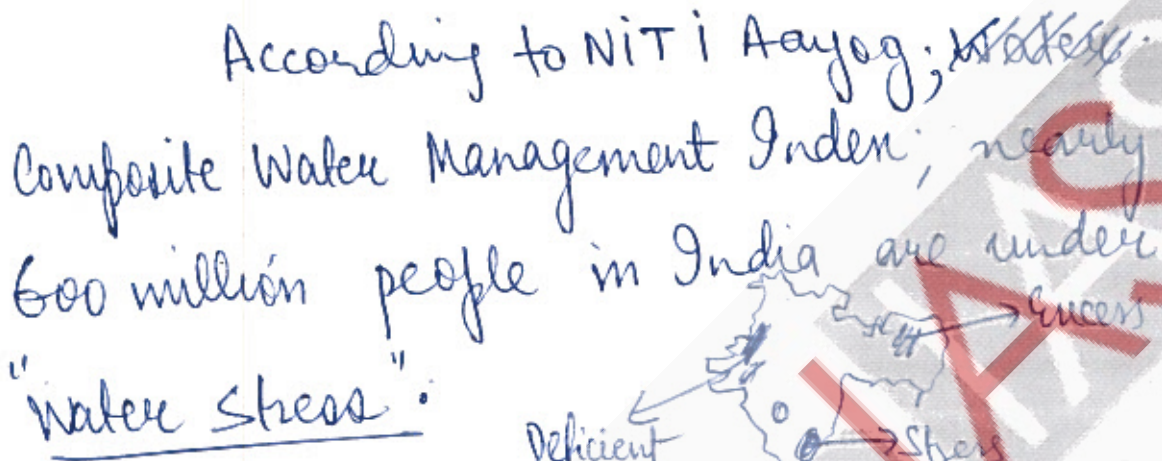 According to NiTi Aayog; Water
Composite Water Management Index; nearly
600 million people in India are under
Excess
"Water Stress".
Deficient
Stress
IAS